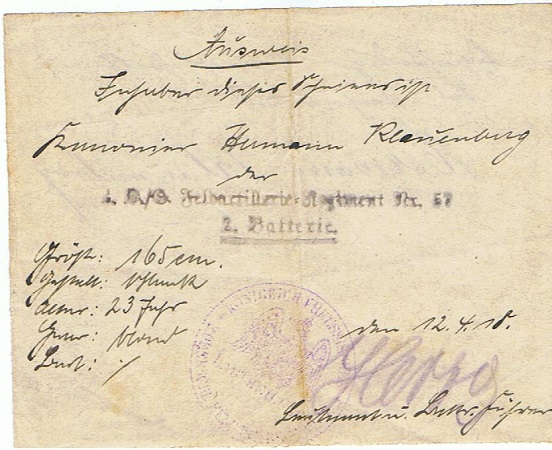 Ausweis
Inhaber dieses Scheines ist
Kanonier Hermann Klauenberg
der
Feldartillerie-Regiment Nr. 57
2. Batterie.
Größe: 165 cm.
Gestalt: schlank
Alter: 23 Jahr
Haar: blond
Bart: /
den 12.4.18.
Leutnant u. Battr. Führer